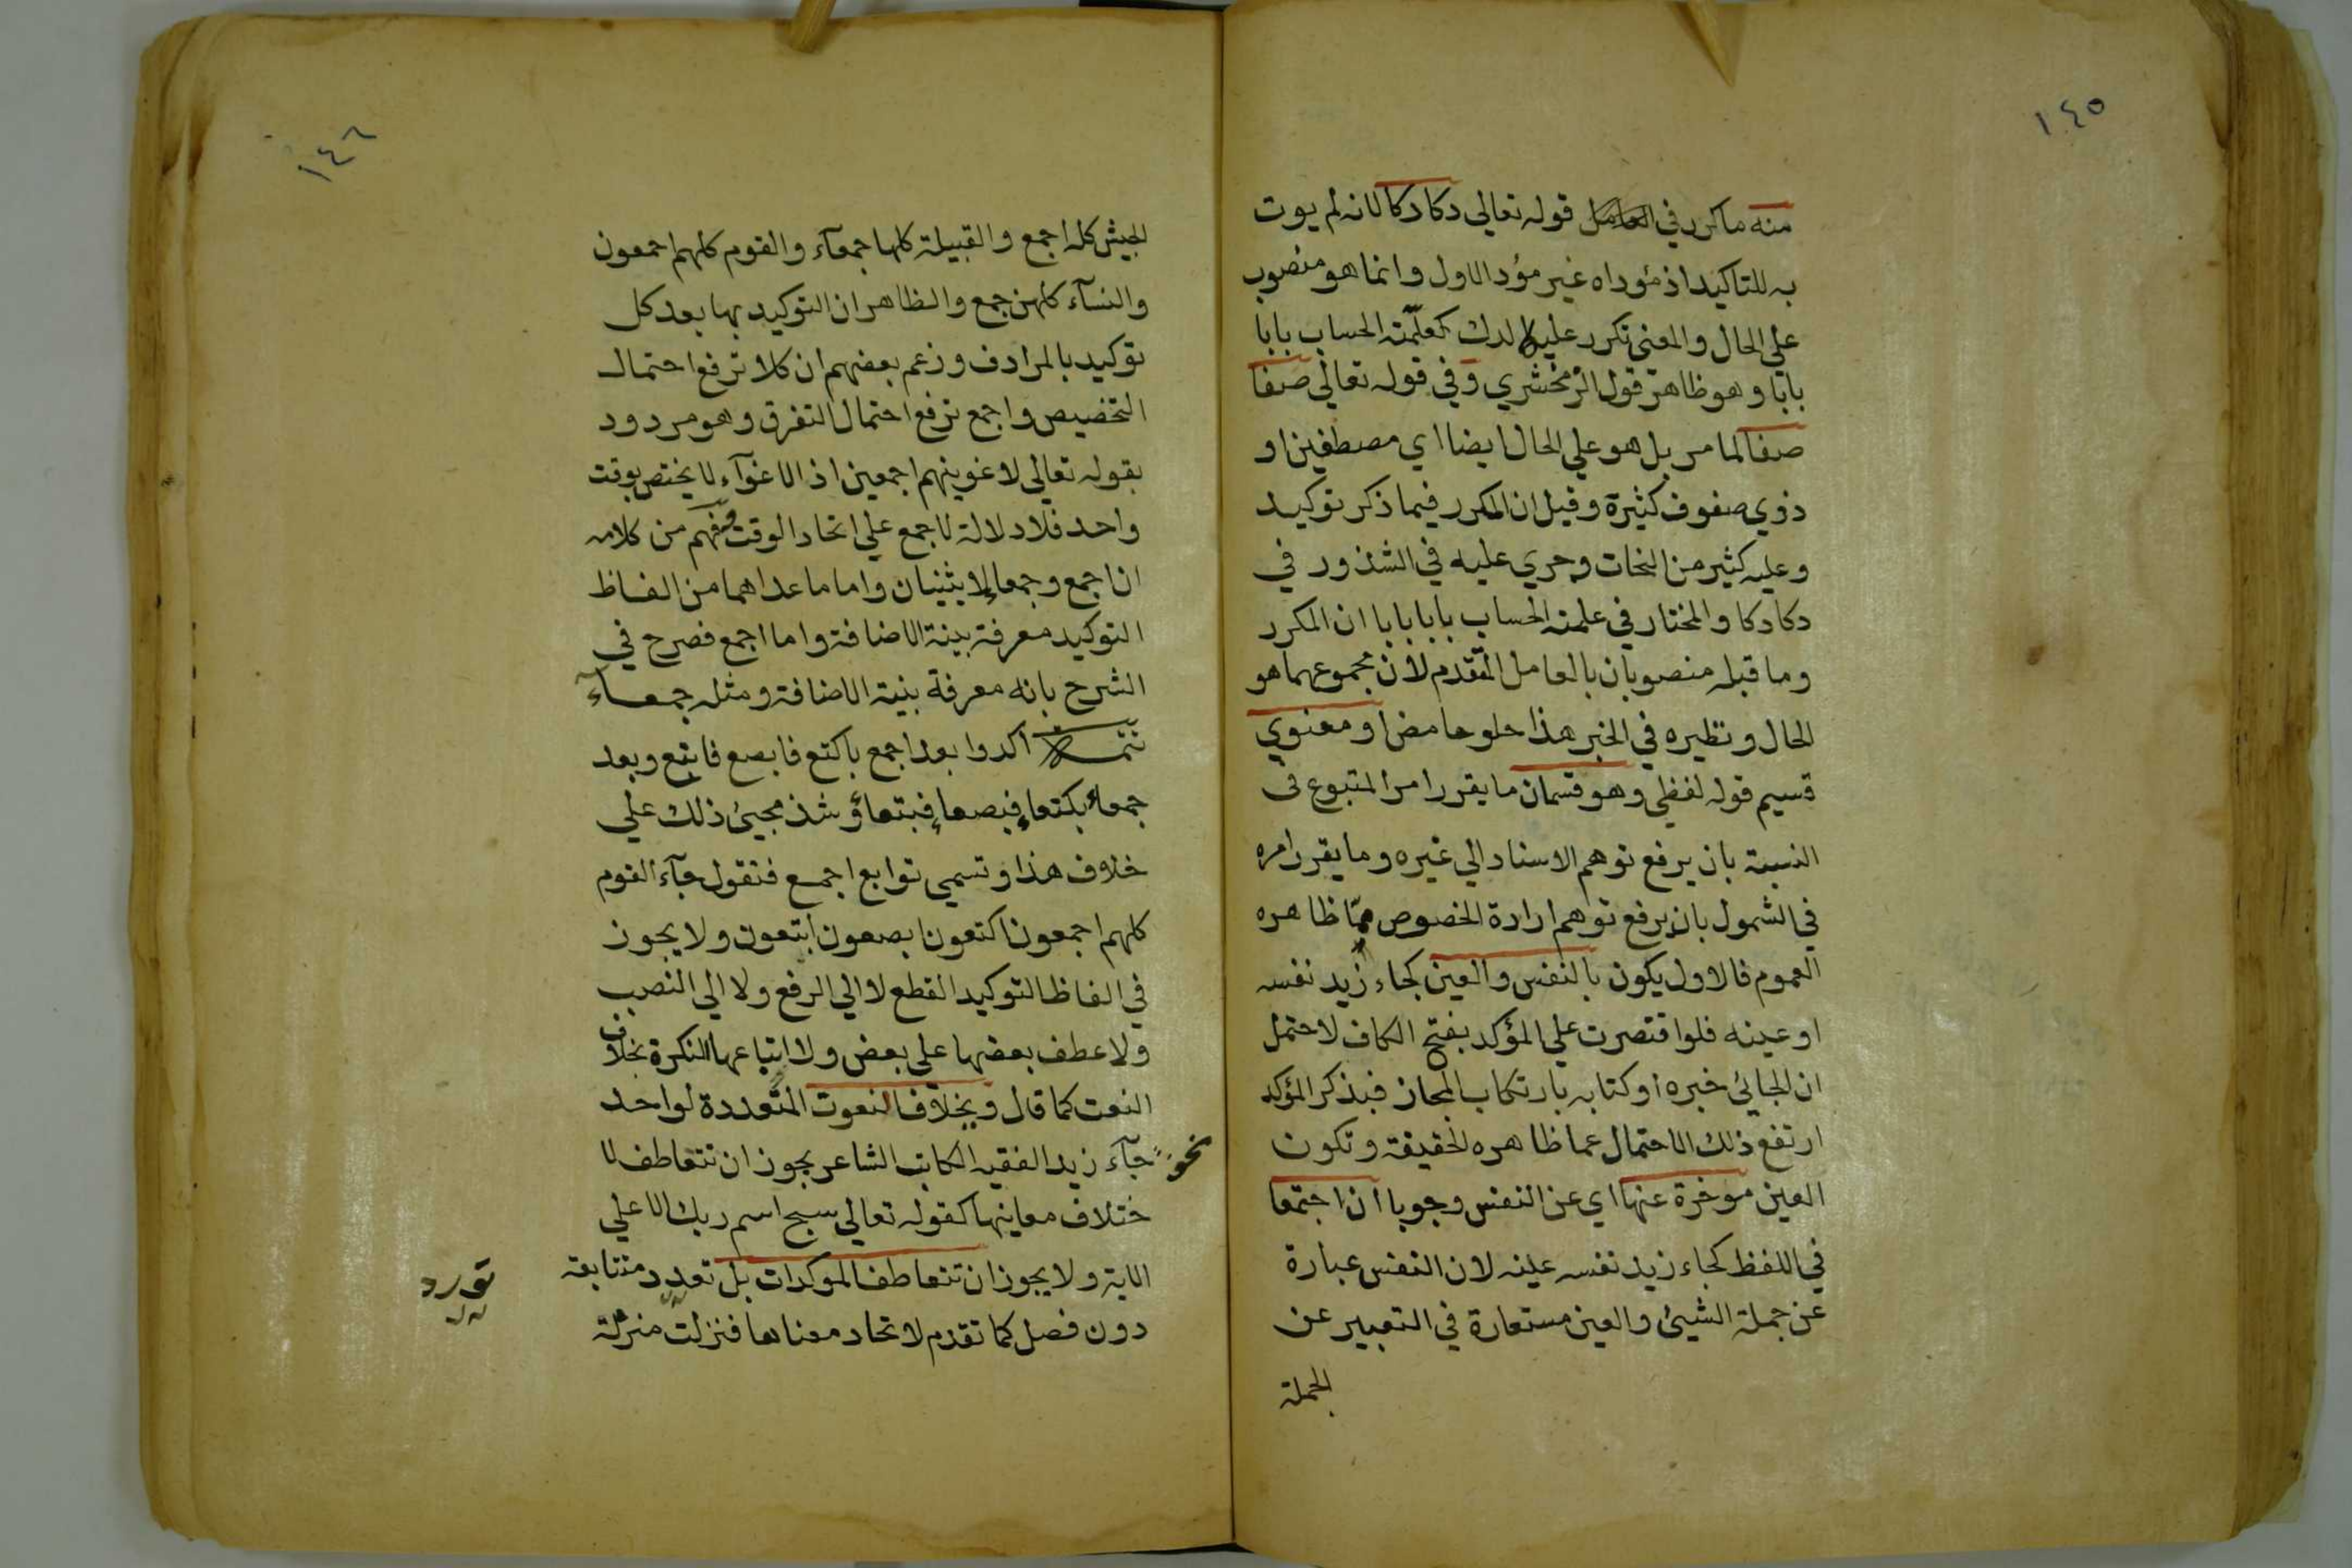 ١٤٥
منه ما كرر في العامل قوله تعالي دكا دكا لانه لم يوت
به للتاكيد اذ مؤداه غير مؤد الاول وانما هو منصوب
علي الحال والمعني تكرر عليه الدك كعلّمته الحساب بابا
بابا وهو ظاهر قول الزمخشري وفي قوله تعالي صفا
صفا لما مر بل هو علي الحال ايضا اي مصطفين او
ذوي صفوف كثيرة وقيل ان المكرر فيما ذكر توكيد
وعليه كثير من النحات وجري عليه في الشذور في
دكا دكا والمختار في علمته الحساب بابا بابا ان المكرر
وما قبله منصوبان بالعامل المتقدم لان مجموعهما هو
الحال ونظيره في الخبر هذا حلو حامض او معنوي
قسيم قوله لفظي وهو قسمان ما يقرر امر المتبوع في
النسبة بان يرفع توهم الاسناد الي غيره وما يقرر امره
في الشمول بان يرفع توهم ارادة الخصوص مما ظاهره
العموم فالاول يكون بالنفس والعين كجاء زيد نفسه
او عينه فلو اقتصرت علي المؤكد بفتح الكاف لاحتمل
ان الجائي خبره او كتابه بارتكاب المجاز فبذكر المؤكد
ارتفع ذلك الاحتمال عما ظاهره الحقيقة وتكون
العين موخرة عنها اي عن النفس وجوبا ان اجتمعا
في اللفظ كجاء زيد نفسه عينه لان النفس عبارة
عن جملة الشيئ والعين مستعارة في التعبير عن
الجملة
١٤٦
الجيش كله اجمع والقبيلة كلها جمعآء والقوم كلهم اجمعون
والنسآء كلهن جمع والظاهر ان التوكيد بها بعد كل
توكيد بالمرادف وزعم بعضهم ان كلا ترفع احتمال
التخصيص واجمع ترفع احتمال التفرق وهو مردود
بقوله تعالي لاغوينهم اجمعين اذ الاغوآء لا يختص بوقت
واحد فلا دلالة لاجمع علي اتحاد الوقت وفهم من كلامه
ان اجمع وجمعاء لا يثنيان واما ما عداهما من الفاظ
التوكيد معرفة بنية الاضافة واما اجمع فصرح في
الشرح بانه معرفة بنية الاضافة ومثله جمعآء
تتمة اكدوا بعد اجمع باكتع فابصع فابتع وبعد
جمعاء بكتعاء فبصعاء فبتعاء وشذ مجيئ ذلك علي
خلاف هذا وتسمي توابع اجمع فتقول جآء القوم
كلهم اجمعون اكتعون ابصعون ابتعون ولا يجوز
في الفاظ التوكيد القطع لا الي الرفع ولا الي النصب
ولا عطف بعضها علي بعض ولا اتباعها النكرة بخلاف
النعت كما قال وبخلاف النعوت المتعددة لواحد
نحو جآء زيد الفقيه الكاتب الشاعر يجوز ان تتعاطف لا
ختلاف معاينها كقوله تعالي سبح اسم ربك الاعلي
الاية ولا يجوز ان تتعاطف الموكدات بل تعدد متتابعة
دون فصل كما تقدم لاتحاد معناها فنزلت منزلة
تورد